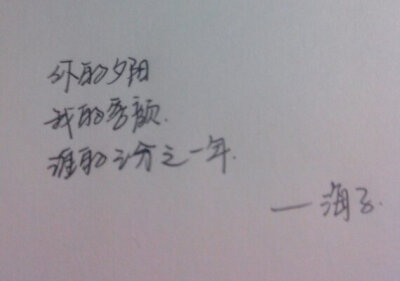 你的夕阳
我的容颜.
谁的三分之一年.
——海子.